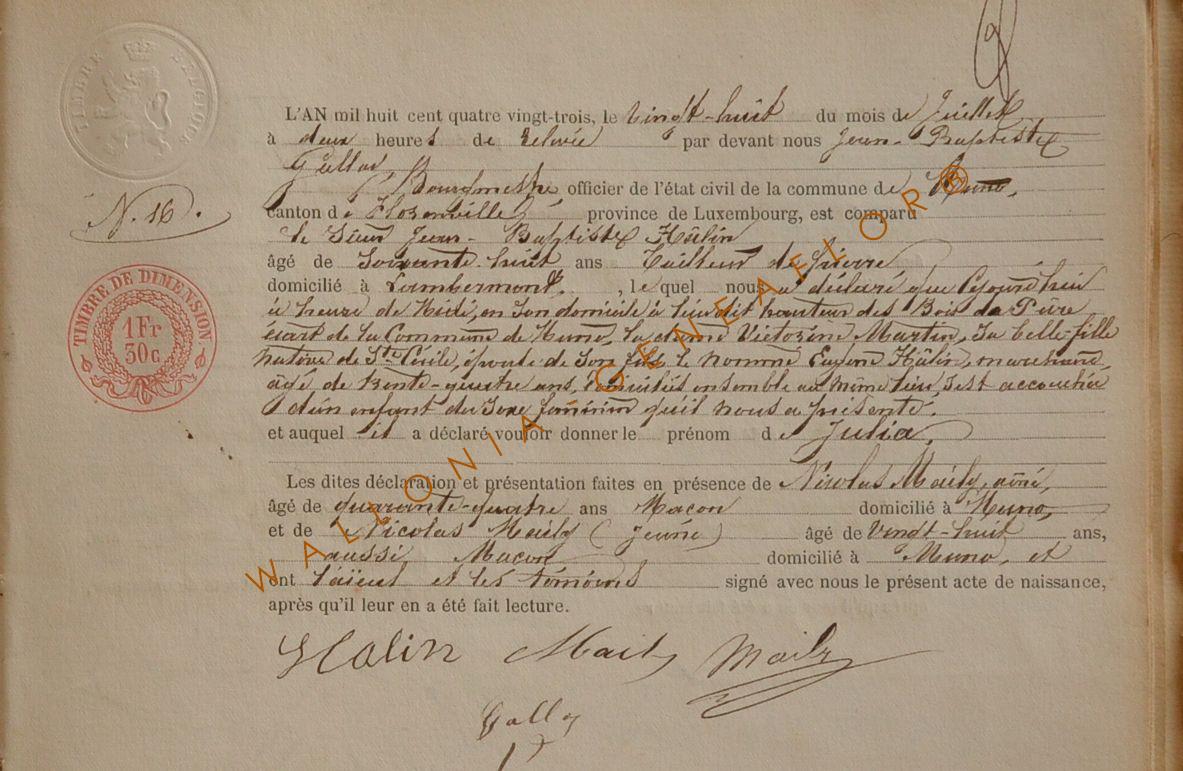 TIMBRE BELGIQUE
L'AN mil huit cent quatre vingt-trois, le vingt-huit du mois de Juillet
à deux heures de relevée par devant nous Jean-Baptiste
Bourgmestre officier de l'état civil de la commune de Muno,
N. 16.
canton de Florenville province de Luxembourg, est comparu
le Sieur Jean-Baptiste Hâlin
âgé de Soixante-huit ans tailleur de pierre
domicilié à Lambermont, lequel nous a déclaré que cejourd'hui
à heure de Midi, en son domicile à lieu dit hauteur des Bois de
écart de la Commune de Muno, la dame Victorine Martin, sa belle-fille
native de Ste Cécile, épouse de son fils le nommé Eugène Hâlin,
âgé de trente-quatre ans, domiciliés ensemble au même lieu, s'est accouchée
d'un enfant du Sexe féminin qu'il nous a présenté,
et auquel il a déclaré vouloir donner le prénom de Julia.
TIMBRE DE DIMENSION
1 Fr
30 c
Les dites déclaration et présentation faites en présence de Nicolas Maily, ainé,
âgé de quarante-quatre ans Maçon domicilié à Muno,
et de Nicolas Maily (jeune) âgé de vingt-huit ans,
aussi Maçon domicilié à Muno, et
ont l'aïeul et les témoins signé avec nous le présent acte de naissance,
après qu'il leur en a été fait lecture.
Halin Maily Maily
WALLONIA GENEALFLOR®